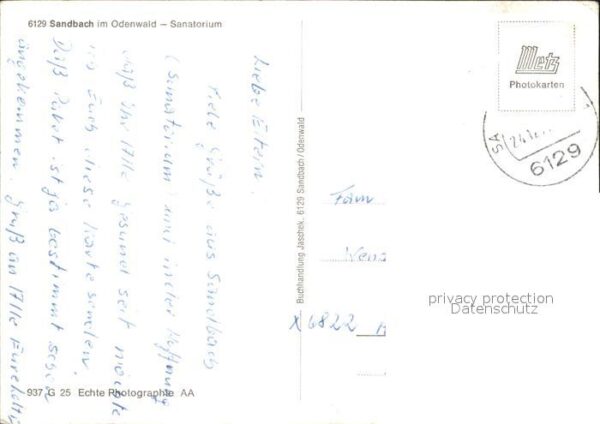 6129 Sandbach im Odenwald – Sanatorium
Liebe Eltern.
Viele Grüße aus Sandbach
(Sanatorium) und in der Hoffnung
daß Ihr Alle gesund seit möchte
ich Euch diese Karte senden.
Daß Paket ist ja bestimmt schon
angekommen. Gruß an Alle Eure
937 G 25 Echte Photographie AA
Buchhandlung Jaschek, 6129 Sandbach/Odenwald
Metz
Photokarten
SA
24.12.
6129
Fam
X6822
privacy protection
Datenschutz